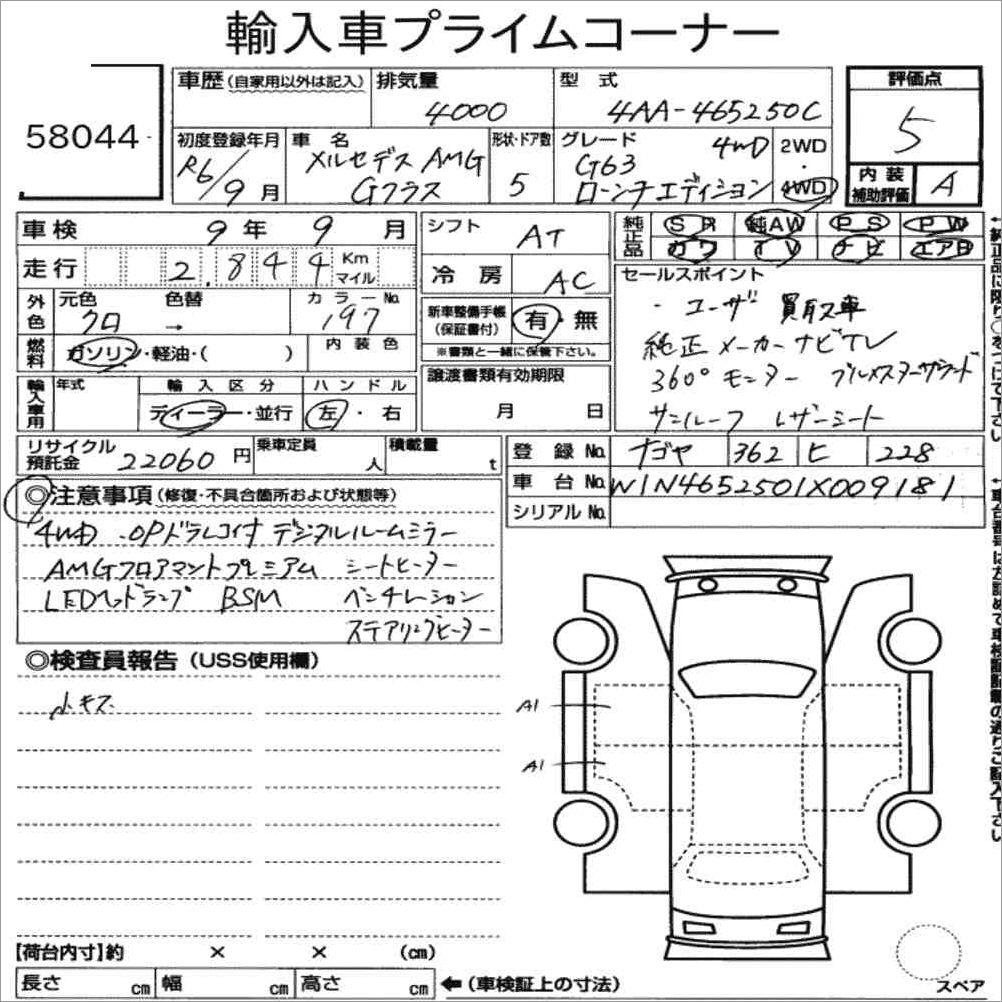 輸入車プライムコーナー
58044
車歴(自家用以外は記入) 排気量 4000 型式 4AA-465250C
評価点 5
初度登録年月 R6/9月 車名 メルセデスAMG Gクラス 形状・ドア数 5 グレード G63 4WD ローンチエディション 2WD・4WD
内装補助評価 A
車検 9年 9月 シフト AT
純正品 SR 純AW PS PW
カワ TV ナビ エアB
走行 2,844 Km マイル 冷房 AC
セールスポイント
・ユーザー買取車
純正メーカーナビTV
360°モニター ブルメスターサラウンド
サンルーフ レザーシート
外色 元色 クロ 色替 → カラーNo. 197
燃料 ガソリン・軽油・( ) 内装色
新車整備手帳(保証書付) 有・無
※書類と一緒に保管下さい。
輸入車用 年式 輸入区分 ディーラー・並行 ハンドル 左・右
譲渡書類有効期限 月 日
リサイクル預託金 22060円 乗車定員 人 積載量 t
登録No. ナゴヤ 362 ヒ 228
車台No. W1N4652501X009181
シリアルNo.
◎注意事項(修復・不具合箇所および状態等)
4WD OPドラレコ付 デジタルルームミラー
AMGフロアマットプレミアム シートヒーター
LEDヘッドランプ BSM ベンチレーション
ステアリングヒーター
◎検査員報告(USS使用欄)
小キズ
A1
A1
【荷台内寸】約 × × (cm)
長さ cm 幅 cm 高さ cm ←(車検証上の寸法)
スペア
↑純正品に限り○をつけて下さい
↑車台番号は左詰めで車検証記載の通りご記入下さい